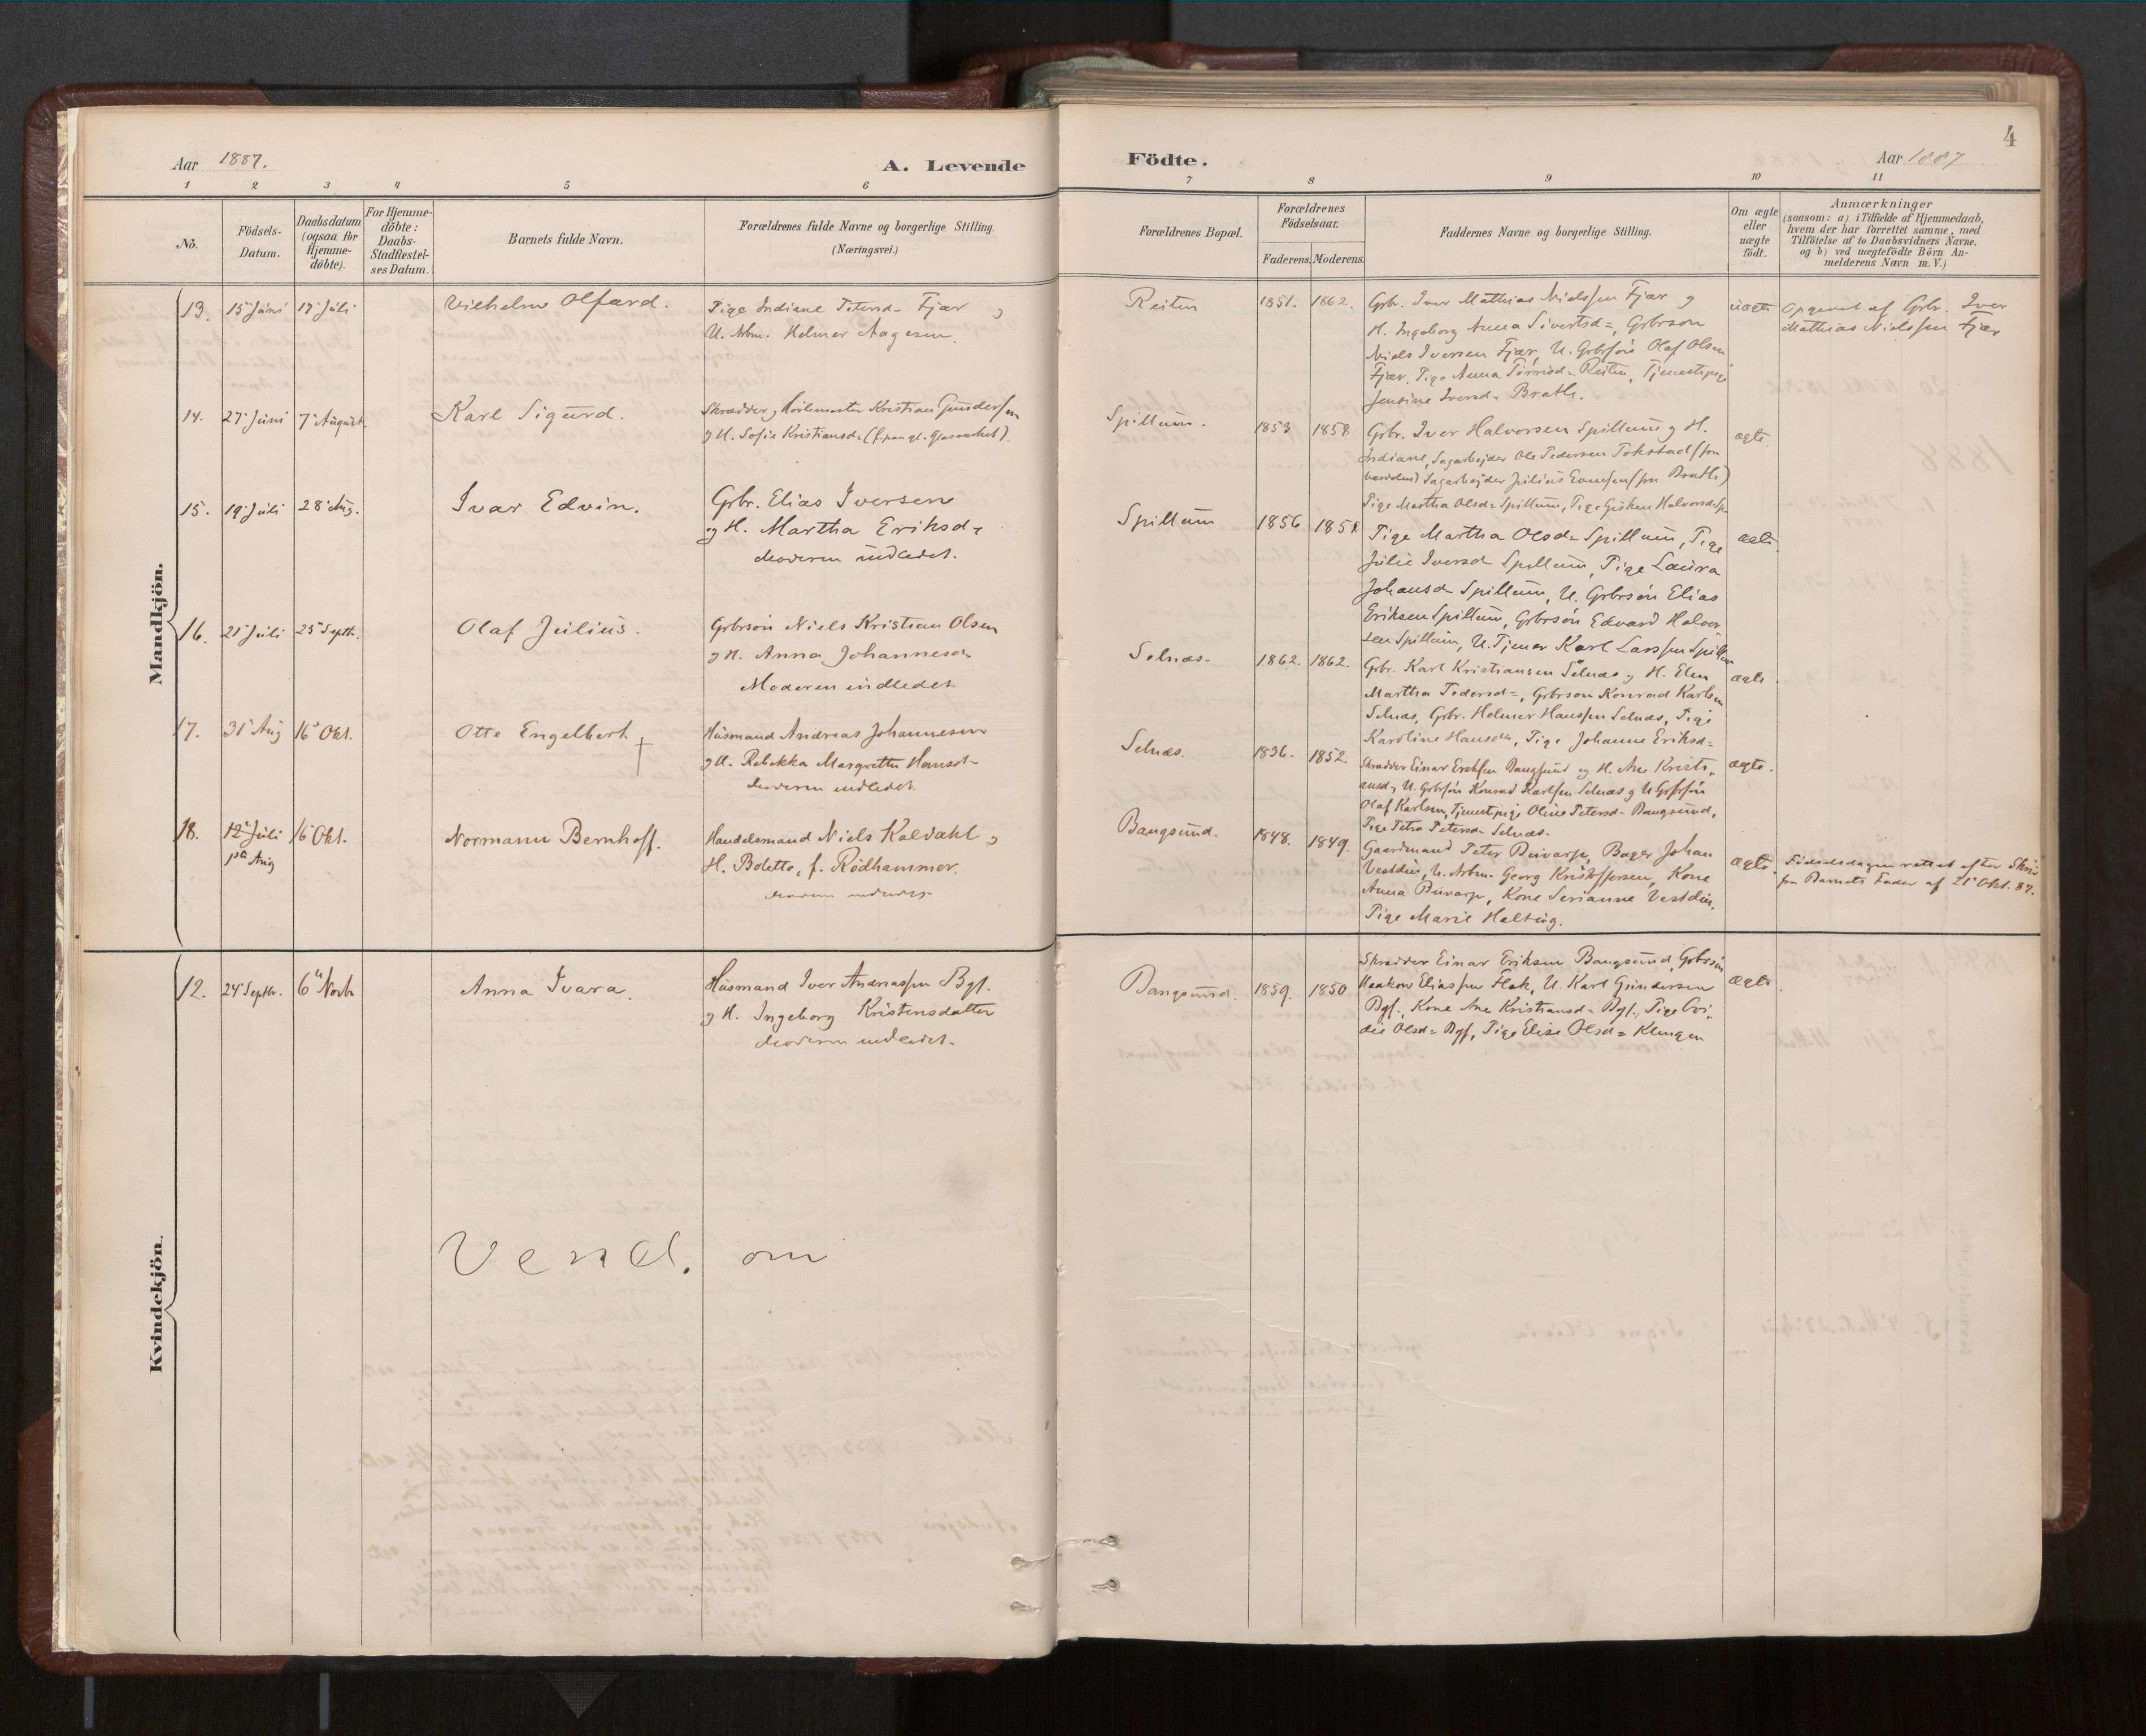 4
Aar 1887.
A. Levende
Födte.
Aar 1887
1 2 3 4 5 6
7 8 9 10 11
No.
Födsels-
Datum.
Daabsdatum
(ogsaa for
Hjemme-
döbte).
For Hjemme-
döbte:
Daabs-
Stadfæstel-
ses Datum.
Barnets fulde Navn.
Forældrenes fulde Navne og borgerlige Stilling.
(Næringsvei.)
Forældrenes Bopæl.
Forældrenes
Födselsaar.
Faderens. Moderens.
Faddernes Navne og borgerlige Stilling.
Om ægte
eller
uægte
født.
Anmærkninger
(saasom: a) i Tilfælde af Hjemmedaab,
hvem der har forrettet samme, med
Tilföielse af to Daabsvidners Navne.
og b) ved uægtefödte Börn An-
melderens Navn m.V.)
Mandkjön.
13. 15 Juni 17 Juli
Vilhelm Olfard.
Pige Indiane Petersd- Fjær og
U. Arbm. Helmer Aagesen.
Reiten 1851. 1862.
Grbr. Iver Mathias Nielssen Fjær og
H. Ingeborg Anna Sivertsd=, Grbrsøn
Niels Iversen Fjær, U. Grbsøn Olaf Olsen
Fjær, Pige Anna Reiten, Tjenestpige
Jensine Iversd- Brath.
uægte
Opgivet af Grbr. Iver
Mathias Nielssen Fjær
14. 27 Juni 7 August.
Karl Sigurd.
Skrædder og Kristian Gunderssen
og H. Sofie Kristiansd=
Spillum. 1853 1858
Grbr. Iver Halvorsen Spillum og H.
Indiane, Sagarbejder Ole Pedersen
Sagarbejder Julius
Pige Martha Olsd= Spillum, Pige Halvorsd
ægte.
15. 19 Juli 28 Aug.
Ivar Edvin.
Grbr. Elias Iversen
og H. Martha Eriksd=
Moderen indledet.
Spillum 1856 1858
Pige Martha Olsd= Spillum, Pige
Julie Iversd Spillum, Pige Laura
Johansd= Spillum, U. Grbrsön Elias
Eriksen Spillum, Grbrsön Edvard Halvor
sen Spillum, U. Tjener Karl Larssen Spillum
ægte.
16. 21 Juli 25 Septb.
Olaf Julius.
Grbrsön Niels Kristian Olsen
og H. Anna Johannesd=
Moderen indledet
Selnæs. 1862. 1862.
Grbr. Karl Kristiansen Selnæs og H. Elen
Martha Pedersd=, Grbrsøn Konrad Karlsen
Selnæs, Grbr. Helmer Hanssen Selnæs, Pige
Karoline Hansd=, Pige Johanne Eriksd=
ægte.
17. 31 Aug 16 Okt.
Otte Engelbert
Husmand Andreas Johannesen
og H. Rebekka Margrethe Hansd-
Moderen indledet
Selnæs. 1836. 1852
Skrædder Einar Erikssen Bangsund og H. Ane Kristi,
ansd, U. Grbsön Konrad Karlsen Selnæs og U Grbsön
Olaf Karlsen, Tjenestpige Oline Petersd- Bangsund,
Pige Petra Petersd- Selnæs.
ægte.
18. 12 Juli 16 Okt.
1ste Aug
Normann Bernhoff.
Handelsmand Niels Kaldahl og
H. Bolette, f. Rödhammer.
Bangsund. 1848. 1849.
Gaardmand Peter Duvarp, Bager Johan
Vestdin, U. Arbm. Georg Kristoffersen, Kone
Anna Duvarp, Kone Serianne Vestdin,
Pige Marie
ægte.
Födselsdagen rettet efter
fra Barnets Fader af 21 Okt. 87.
Kvindekjön.
12. 24 Septb. 6 Novb
Anna Ivara.
Husmand Iver Andreassen Bgs.
og H. Ingeborg Kristensdatter
Moderen indledet.
Bangsund. 1859. 1850
Skrædder Einar Eriksen Bangsund, Grbrsön
Haakon Eliassen Flak, U. Karl Gundersen
Bgs., Kone Ane Kristiansd- Bgs., Pige Ovi,
die Olsd= Bgs, Pige Elise Olsd= Klingen
ægte.
Vend. om